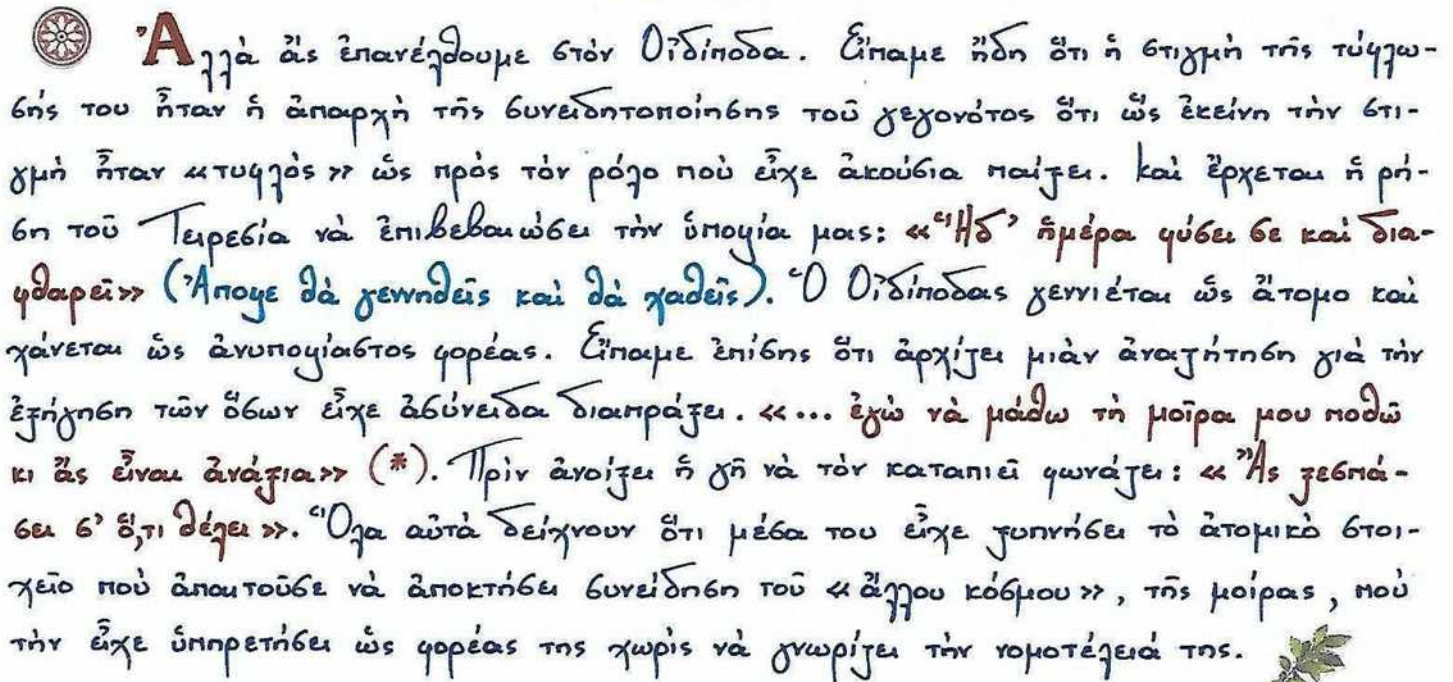 Ἀλλὰ ἂς ἐπανέλθουμε στὸν Οἰδίποδα. Εἴπαμε ἤδη ὅτι ἡ στιγμὴ τῆς τύφλω-
σής του ἦταν ἡ ἀπαρχὴ τῆς συνειδητοποίησης τοῦ γεγονότος ὅτι ὣς ἐκείνη τὴν στι-
γμὴ ἦταν «τυφλὸς» ὡς πρὸς τὸν ρόλο ποὺ εἶχε ἀκούσια παίξει. Καὶ ἔρχεται ἡ ρή-
ση τοῦ Τειρεσία νὰ ἐπιβεβαιώσει τὴν ὑποψία μας: «Ἥδ' ἡμέρα φύσει σε καὶ δια-
φθαρεῖ» (Ἀπόψε θὰ γεννηθεῖς καὶ θὰ χαθεῖς). Ὁ Οἰδίποδας γεννιέται ὡς ἄτομο καὶ
χάνεται ὡς ἀνυποψίαστος φορέας. Εἴπαμε ἐπίσης ὅτι ἀρχίζει μιὰν ἀναζήτηση γιὰ τὴν
ἐξήγηση τῶν ὅσων εἶχε ἀσύνειδα διαπράξει. «... ἐγὼ νὰ μάθω τὴ μοῖρα μου ποθῶ
κι ἂς εἶναι ἀνάξια» (*). Πρὶν ἀνοίξει ἡ γῆ νὰ τὸν καταπιεῖ φωνάζει: «Ἂς ξεσπά-
σει σ' ὅ,τι θέλει». Ὅλα αὐτὰ δείχνουν ὅτι μέσα του εἶχε ξυπνήσει τὸ ἀτομικὸ στοι-
χεῖο ποὺ ἀπαιτοῦσε νὰ ἀποκτήσει συνείδηση τοῦ «ἄλλου κόσμου», τῆς μοίρας, ποὺ
τὴν εἶχε ὑπηρετήσει ὡς φορέας της χωρὶς νὰ γνωρίζει τὴν νομοτέλειά της.